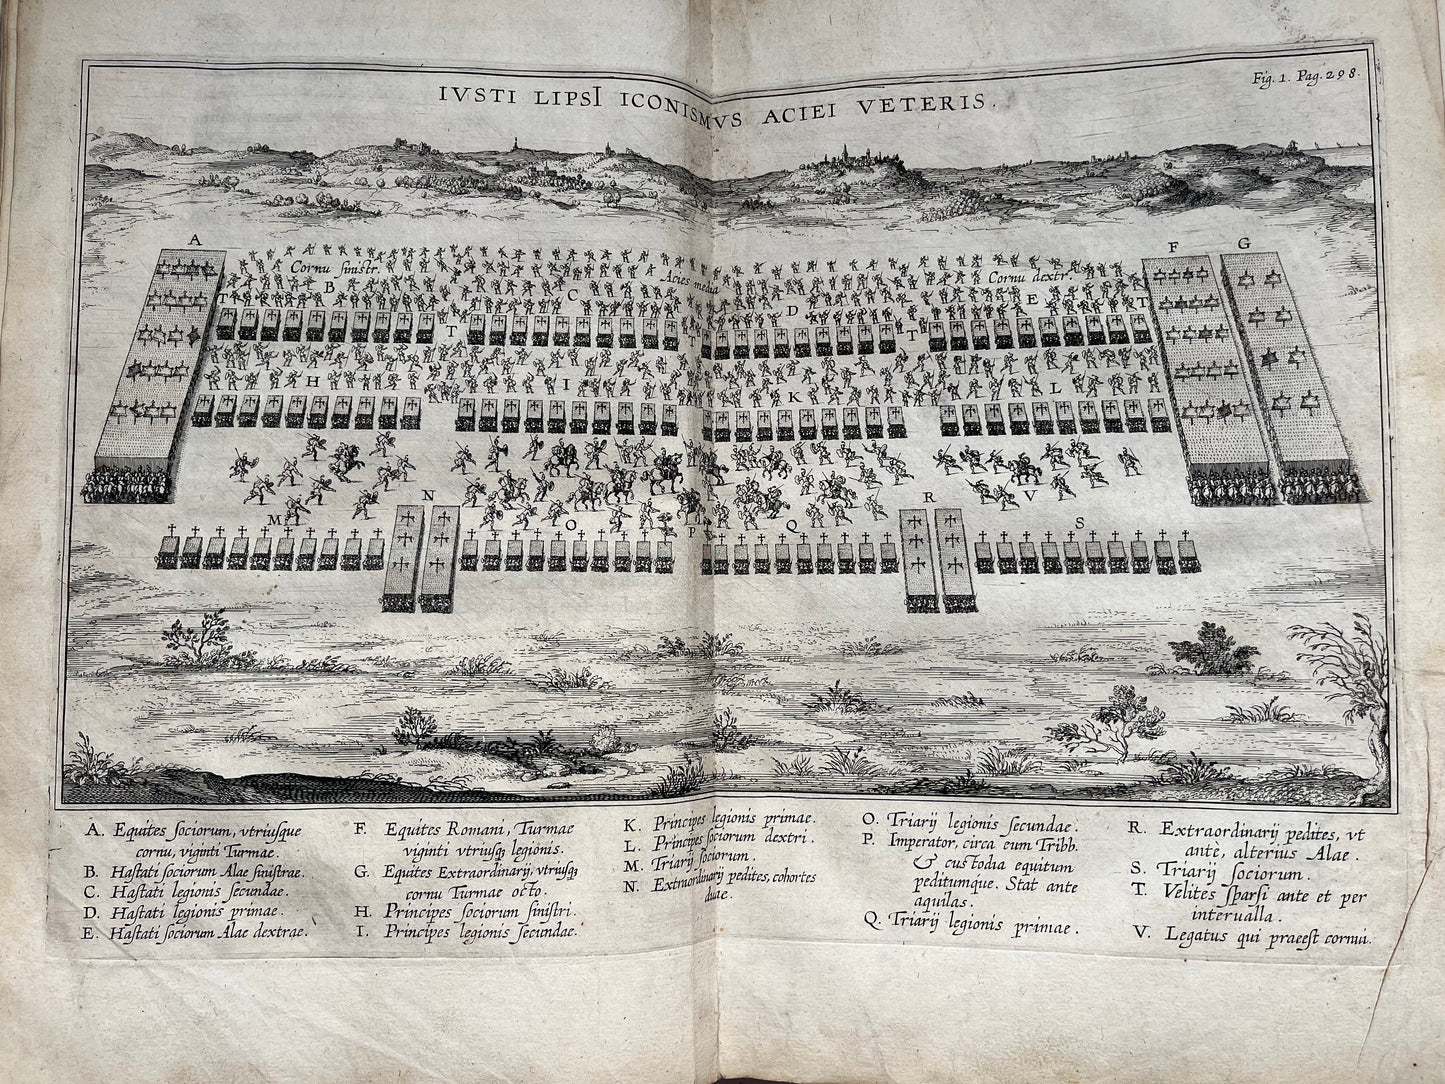 Fig. 1. Pag. 298.
IVSTI LIPSI ICONISMVS ACIEI VETERIS.
A
F G
Cornu sinistr. Acies media Cornu dextr.
B C D E
T T T T T
H I K L
N R V
M O P Q S
A. Equites sociorum, vtriusque
cornu, viginti Turmae.
B. Hastati sociorum Alae sinistrae.
C. Hastati legionis secundae.
D. Hastati legionis primae.
E. Hastati sociorum Alae dextrae.
F. Equites Romani, Turmae
viginti vtriusq legionis.
G. Equites Extraordinarij, vtriusq
cornu Turmae octo.
H. Principes sociorum sinistri.
I. Principes legionis secundae.
K. Principes legionis primae.
L. Principes sociorum dextri.
M. Triarij sociorum.
N. Extraordinarij pedites, cohortes
duae.
O. Triarij legionis secundae.
P. Imperator, circa eum Tribb.
& custodia equitum
peditumque. Stat ante
aquilas.
Q. Triarij legionis primae.
R. Extraordinarij pedites, vt
antè, alterius Alae.
S. Triarij sociorum.
T. Velites sparsi ante et per
interualla.
V. Legatus qui praeest cornui.